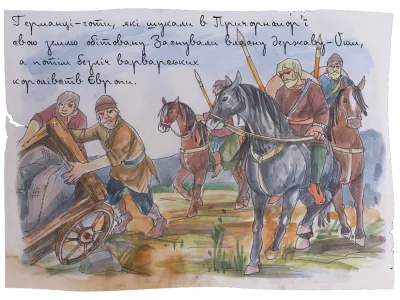 Германці-готи, які шукали в Причорномор'ї
свою землю обітовану. Заснували власну державу-Ойум,
а потім безліч варварських
королівств Європи.